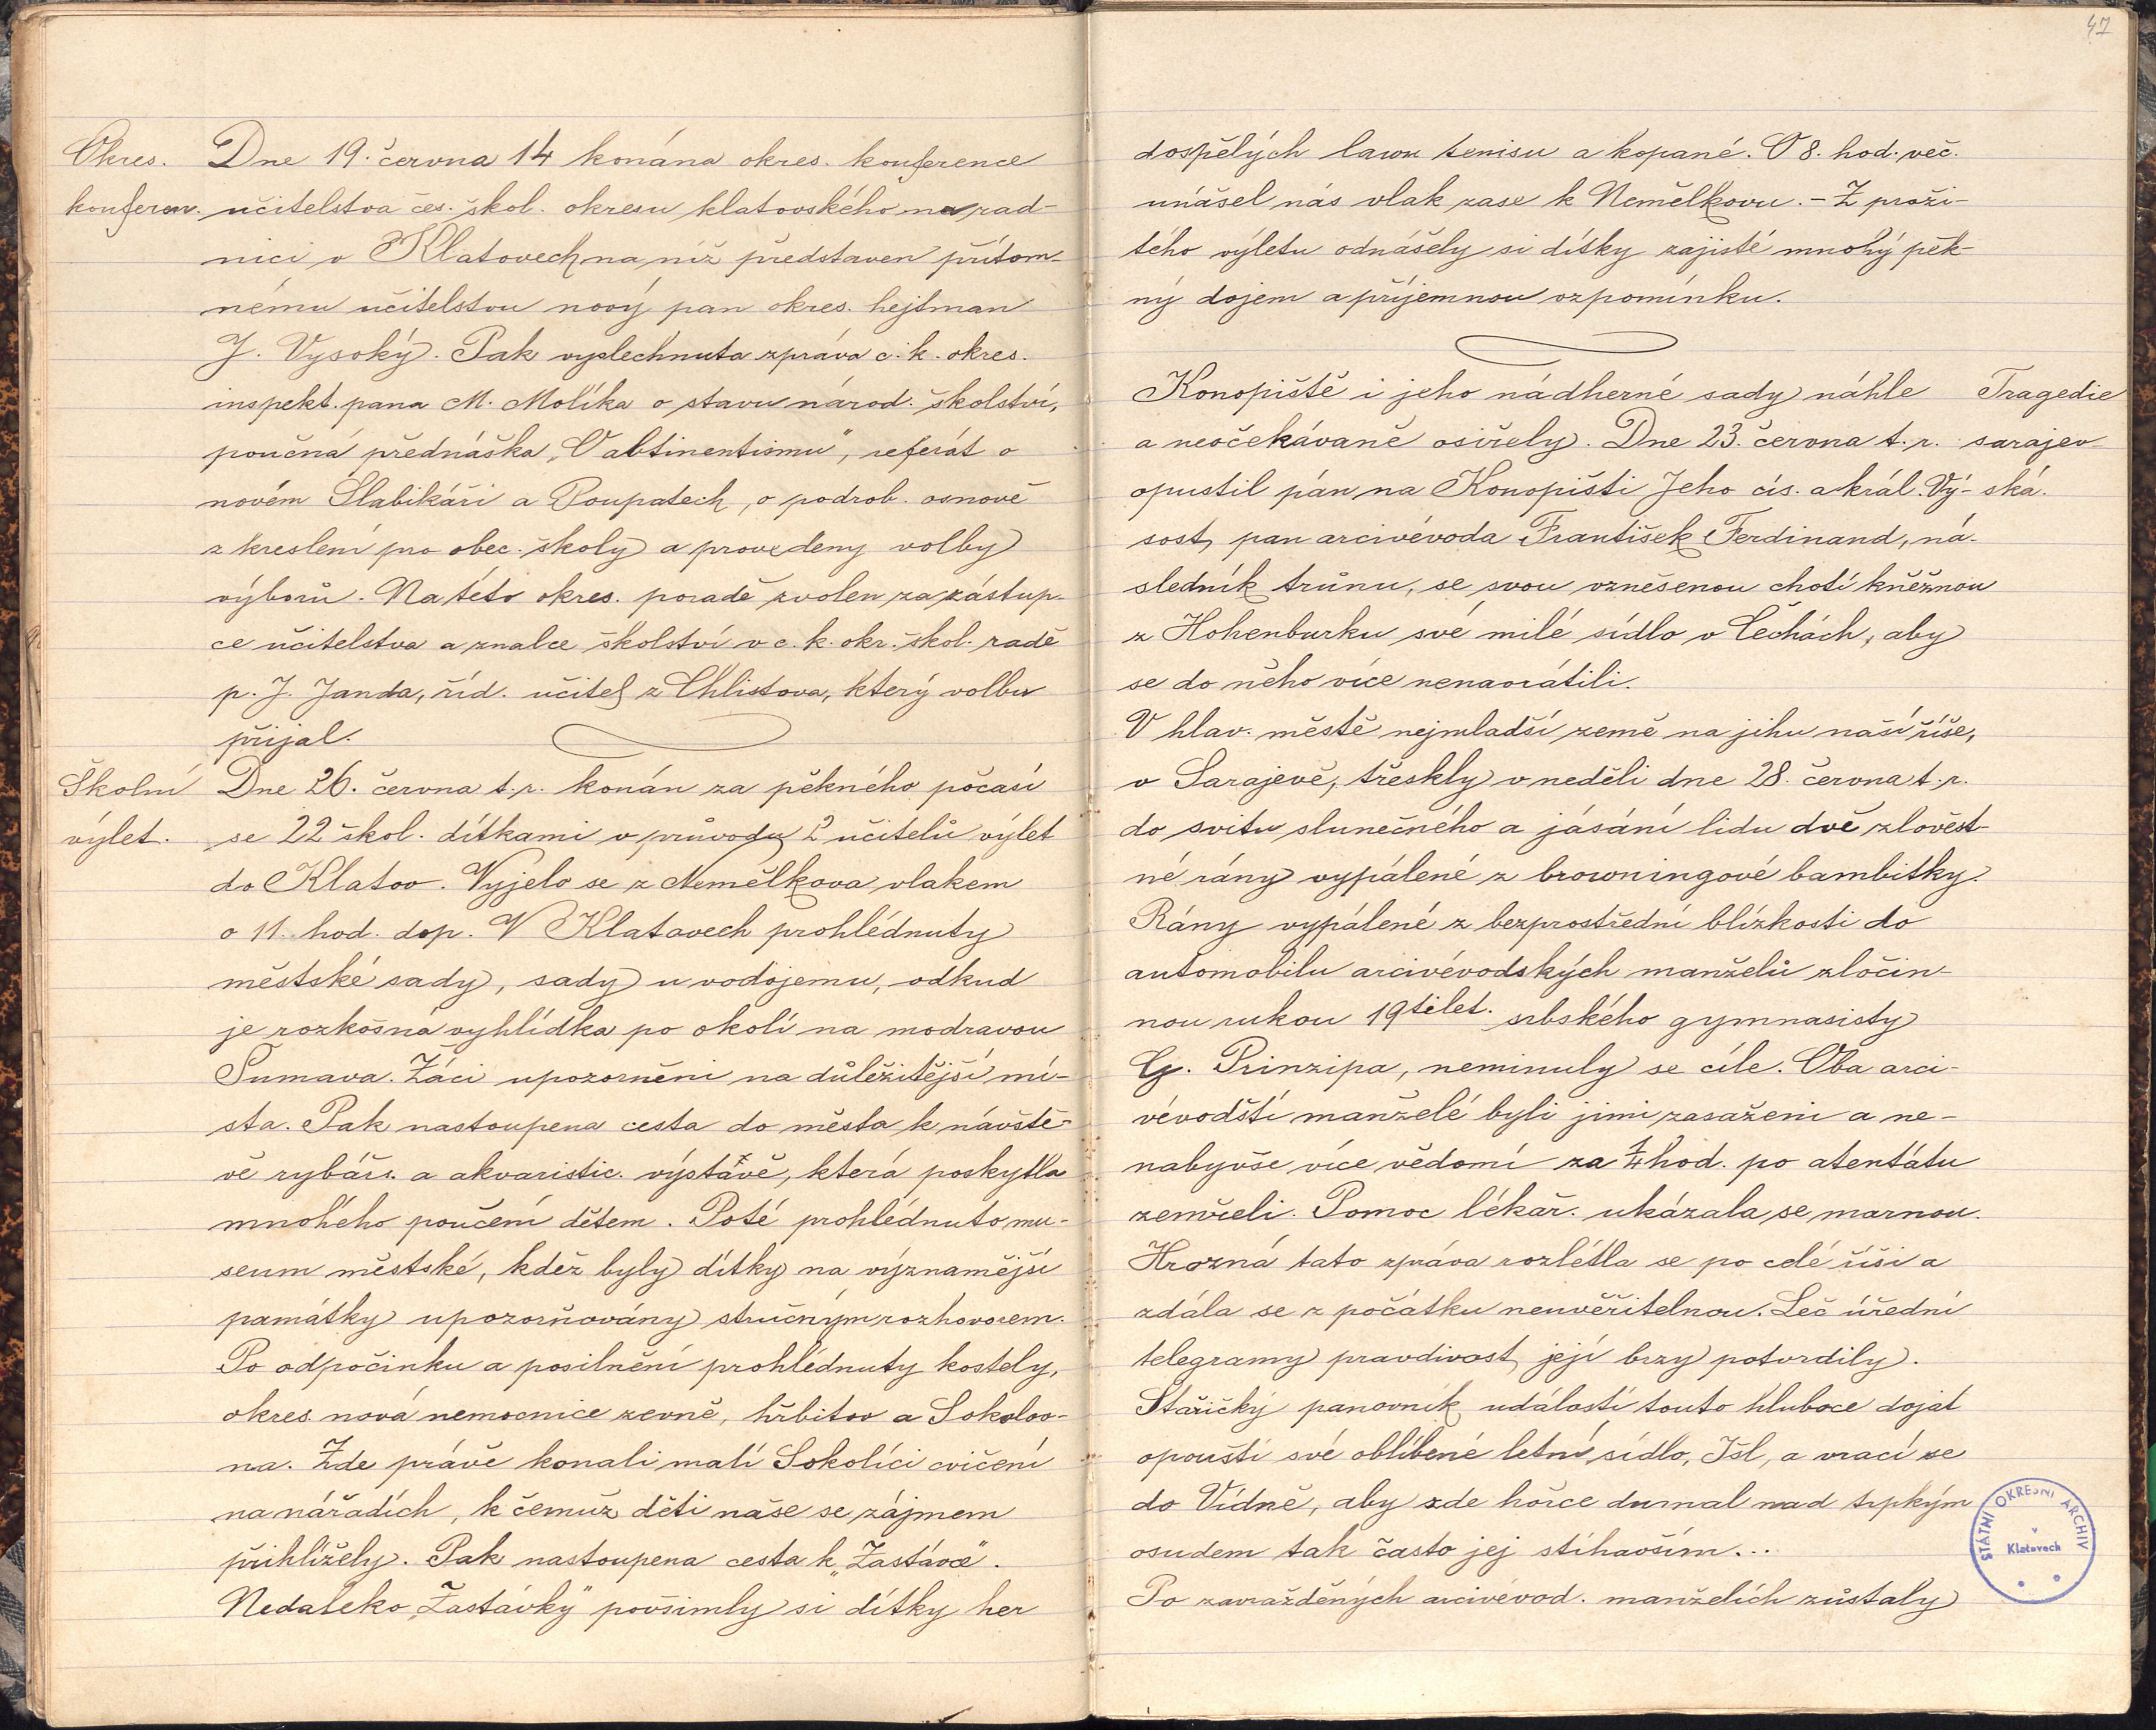 Okres.
konferen.
Dne 19. června 14 konána okres. konference
učitelstva čes. škol. okresu klatovského na rad-
nici v Klatovech na níž představen přítom-
nému učitelstvu nový pan okres. hejtman
J. Vysoký. Pak vyslechnuta zpráva c. k. okres.
inspekt. pana M. Molíka o stavu národ. školství,
poučná přednáška „O abtinentismu", referát o
novém Slabikáři a Poupatech, o podrob. osnově
z kreslení pro obec. školy a provedeny volby
výborů. Na této okres. poradě zvolen za zástup-
ce učitelstva a znalce školství v c. k. okr. škol. radě
p. J. Janda, říd. učitel z Chlistova, který volbu
přijal.
Školní
výlet.
Dne 26. června t. r. konán za pěkného počasí
se 22 škol. dítkami v průvodu 2 učitelů výlet
do Klatov. Vyjelo se z Nemělkova vlakem
o 11. hod. dop. V Klatovech prohlédnuty
městské sady, sady u vodojemu, odkud
je rozkošná vyhlídka po okolí na modravou
Šumava. Žáci upozorněni na důležitější mí-
sta. Pak nastoupena cesta do města k návště-
vě rybářs. a akvaristic. výstavě, která poskytla
mnohého poučení dětem. Poté prohlédnuto mu-
seum městské, kdež byly dítky na významější
památky upozorňovány stručným rozhovorem.
Po odpočinku a posilnění prohlédnuty kostely,
okres. nová nemocnice zevně, hřbitov a Sokolov-
na. Zde právě konali malí Sokolíci cvičení
na nářadích, k čemuž děti naše se zájmem
přihlížely. Pak nastoupena cesta k „Zastávce".
Nedaleko „Zastávky" povšimly si dítky her
47
dospělých lawn tenisu a kopané. O 8. hod. več.
unášel nás vlak zase k Nemělkovu. - Z proži-
tého výletu odnášely si dítky zajisté mnohý pěk-
ný dojem a příjemnou vzpomínku.
Tragedie
sarajev-
ská.
Konopiště i jeho nádherné sady náhle
a neočekávaně osiřely. Dne 23. června t. r.
opustil pán na Konopišti Jeho cís. a král. Vý-
sost, pan arcivévoda František Ferdinand, ná-
sledník trůnu, se svou vznešenou chotí kněžnou
z Hohenburku své milé sídlo v Čechách, aby
se do něho více nenavrátili.
V hlav. městě nejmladší země na jihu naší říše,
v Sarajevě, třeskly v neděli dne 28. června t. r.
do svitu slunečného a jásání lidu dvě zlověst-
né rány vypálené z browningové bambitky.
Rány vypálené z bezprostřední blízkosti do
automobilu arcivévodských manželů zločin-
nou rukou 19tilet. srbského gymnasisty
G. Prinzipa, neminuly se cíle. Oba arci-
vévodští manželé byli jimi zasaženi a ne-
nabyvše více vědomí za 1/4 hod. po atentátu
zemřeli. Pomoc lékař. ukázala se marnou.
Hrozná tato zpráva rozlétla se po celé říši a
zdála se z počátku neuvěřitelnou. Leč úřední
telegramy pravdivost její brzy potvrdily.
Stařičký panovník událostí touto hluboce dojat
opouští své oblíbené letní sídlo, Išl, a vrací se
do Vídně, aby zde hořce dumal nad trpkým
osudem tak často jej stíhavším...
Po zavražděných arcivévod. manželích zůstaly
STÁTNÍ OKRESNÍ ARCHIV
v
Klatovech